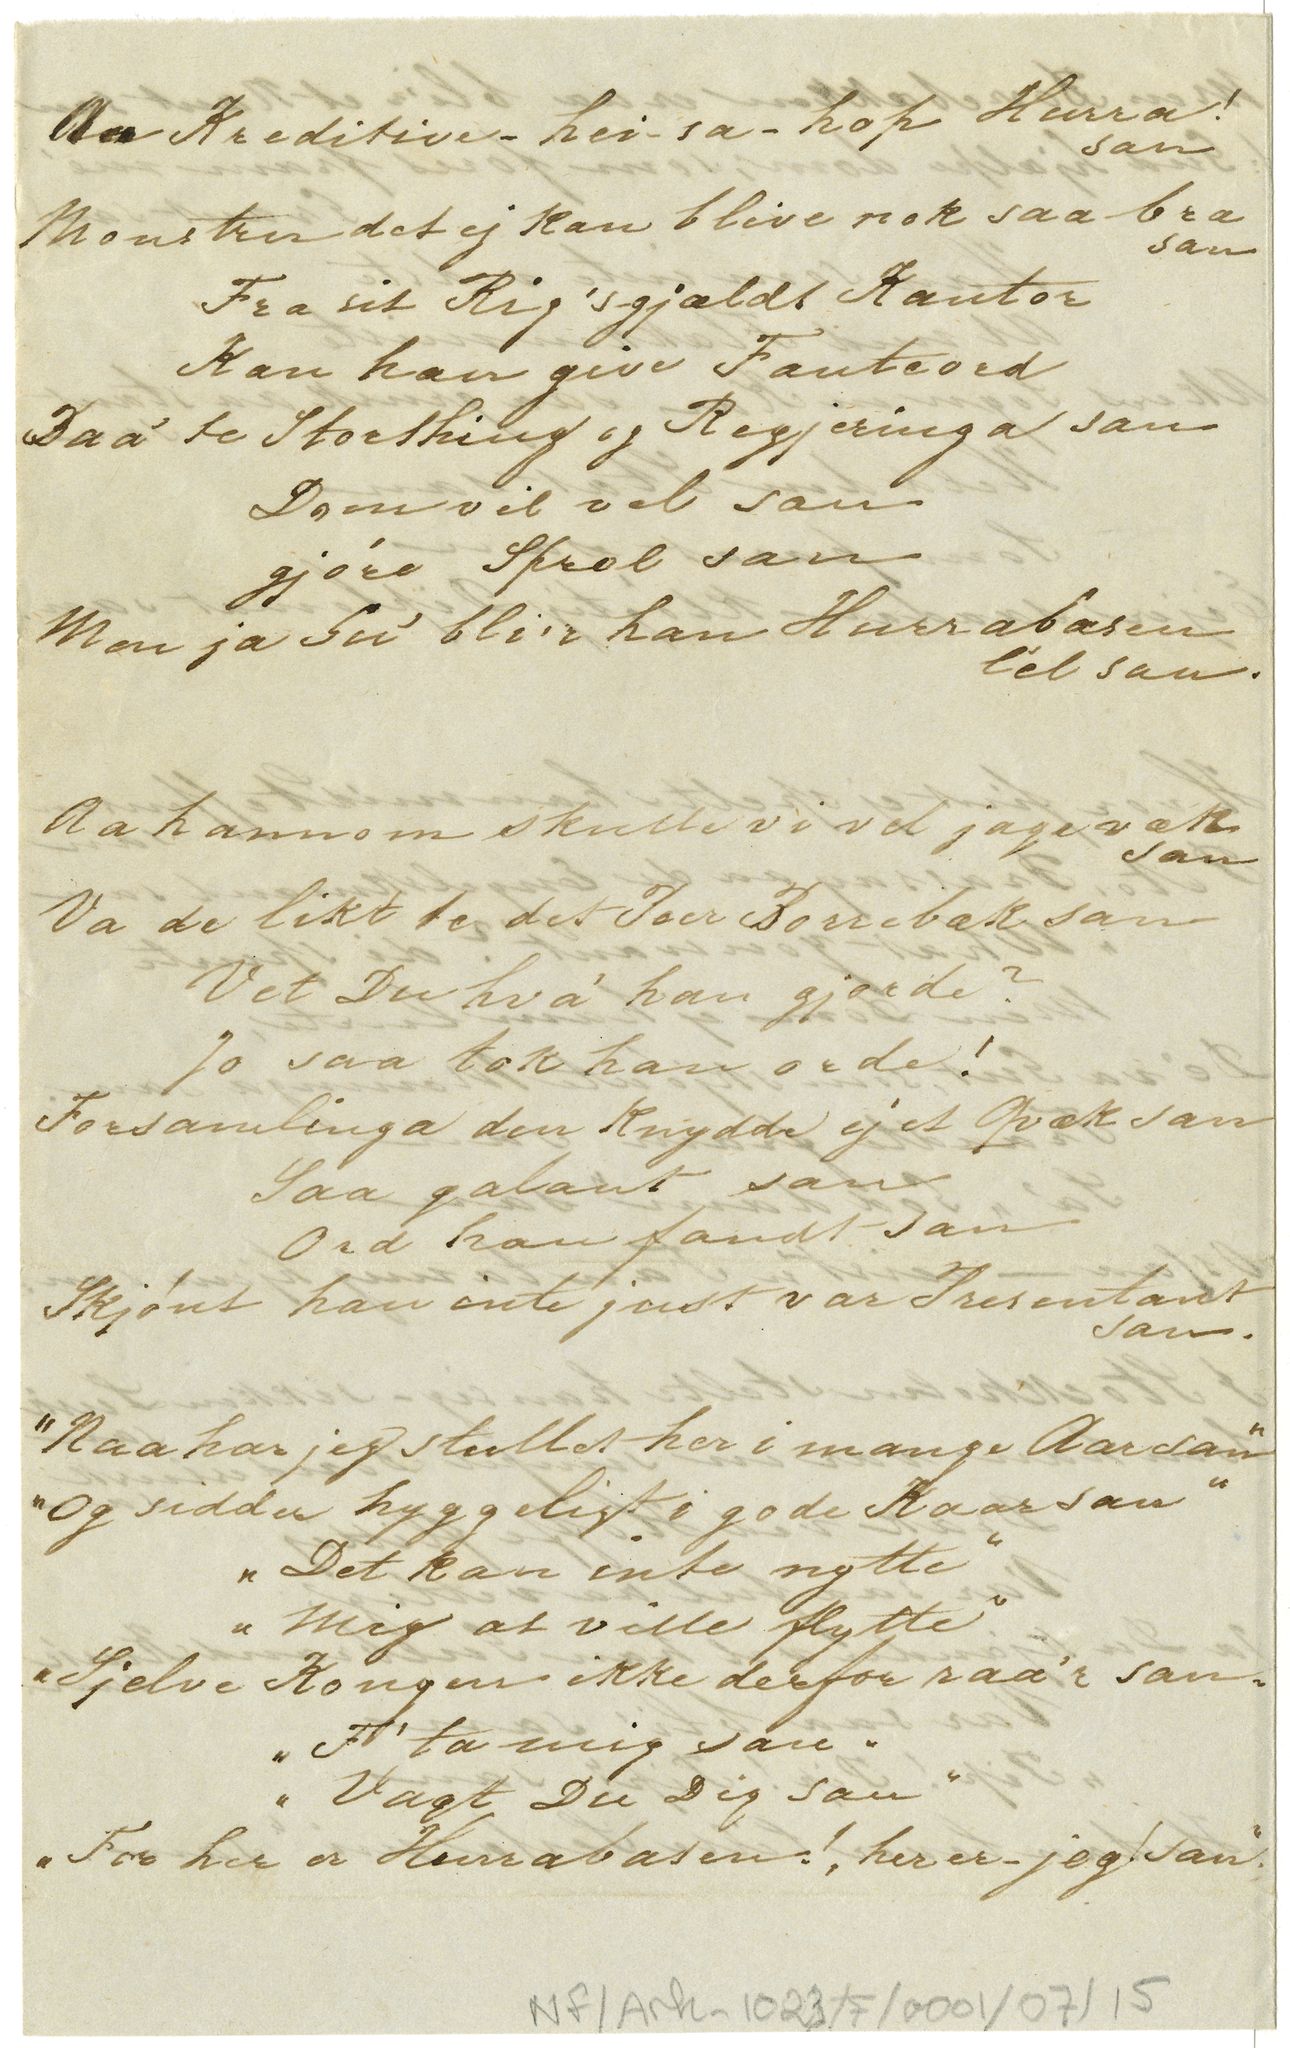 Aa Kreditive - hei-sa-hop Hurra!
san
Monstren det ej kan blive nok saa bra
san
Fra sit Rig'sgjældt Kantor
Kan han give Fanteord
Daa' te Storthing og Regjeringa san
Dom vil vel san
gjóre Sprel san
Men ja Gu' bli'r han Hurrabasen
l'el san.
Aa hannom skulle vi vel jage væk
san
Va de likt te det Joer Borrebæk san
Vet Du hva' han gjorde?
Jo saa tok han orde!
Forsamlinga den knydde ej et Qvæk san
Saa galant san
Ord han fandt san
Skjónt han inte just var Presentant
san.
"Naa har jeg stullet her i mange Aar san"
"Og sidder hyggeligt i gode Kaar san"
"Det kan inte nytte"
"Mig at ville flytte"
"Sjelve Kongen ikke derfor raa'r san.
"F' ta mig san"
"Vagt Du Dig san"
"For her er Hurrabasen!, her er-jeg! san".
NF/Ark-1023/F/0001/07/15